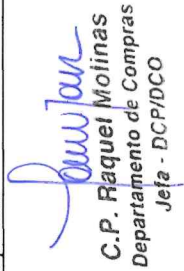 C.P. Raquel Molinas
Departamento de Compras
Jefa - DCP/DCO